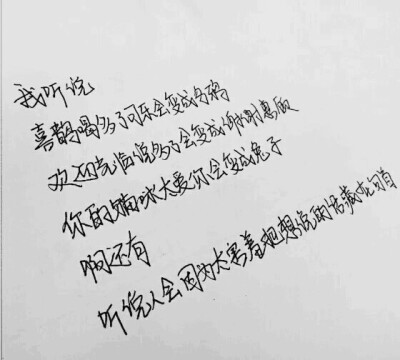 我听说
喜鹊喝多了可乐会变成乌鸦
欢迎光临说多了会变成谢谢惠顾
你的太爱你会变成兔子
啊还有
听说人会因为太害羞把想说的话藏在句首